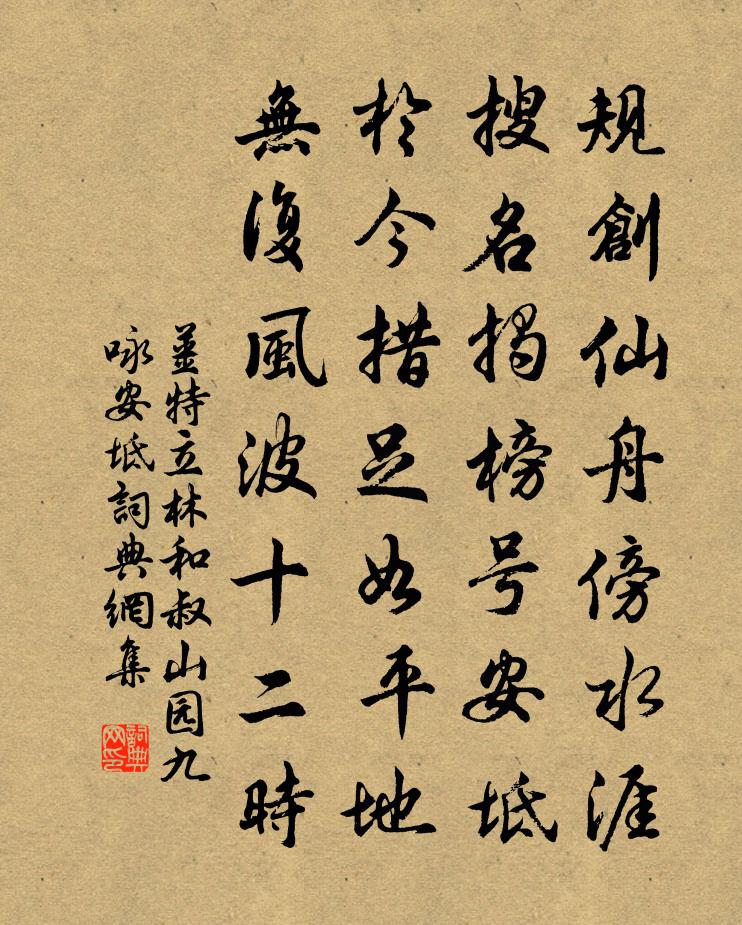 規創仙舟傍水涯
搜名揭榜号安坻
於今措足如平地
無復風波十二時
姜特立林和叔山园九
咏安坻詞典網集
詞典网印